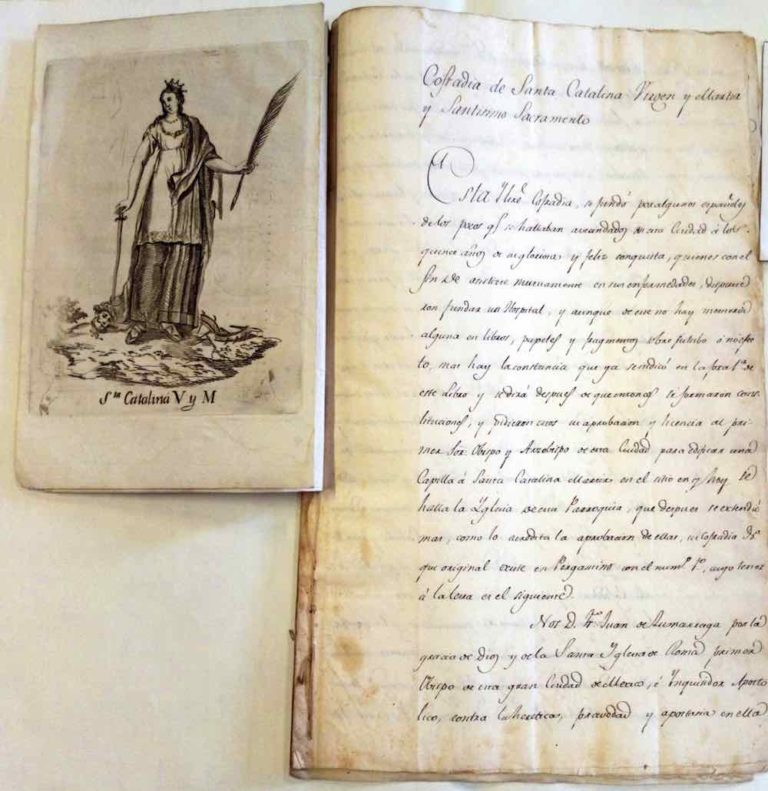 Sta Catalina V y M
Cofradia de Santa Catalina Virgen y Martir
y Santissimo Sacramento
Esta Yltre Cofradia, se fundó por algunos españoles
de los pocos qe se hallaban avecindados en esta Ciudad á los
quince años de su gloriosa, y feliz conquista, quienes con el
fin de asistirse mutuamente en sus enfermedades, dispusie
ron fundar un Hospital, y aunque de este no hay memoria
alguna en libros, papeles y fragmentos sobre si tubo ó no efec
to, mas hay la constancia que ya se indicó en la foxa 1a de
este Libro y se dirá despues de que entonces se formaron cons
tituciones, y pidieron su aprobacion y licencia al pri-
mer Sor Obispo y Arzobispo de esta Ciudad para edificar una
Capilla á Santa Catarina Martir en el sitio en q hoy se
halla la Yglesia de esta Parroquia, que despues se extendió
mas, como lo acredita la aprobacion de ellas, su Cofradia
que original existe en Pergamino con el numo 1o, cuyo tenor
á la letra es el siguiente.
Nos D. Fr Juan de Zumarraga por la
gracia de Dios y de la Santa Yglesia de Roma primer
Obispo de esta gran Ciudad de Mexico, é Ynquisidor Aposto
lico, contra la heretica, pravedad y apostasia en ella